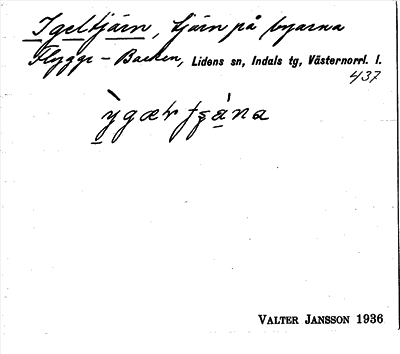 Igeltjärn, tjärn på byarna
Flygge-Backen, Lidens sn, Indals tg, Västernorrl. l.
437
VALTER JANSSON 1936